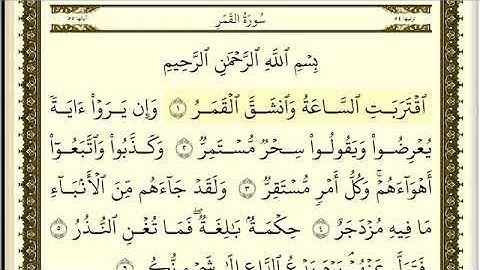 ترتيبها ٥٤ سُورَةُ القَمَرِ آياتها ٥٥
بِسْمِ ٱللَّهِ ٱلرَّحْمَٰنِ ٱلرَّحِيمِ
ٱقْتَرَبَتِ ٱلسَّاعَةُ وَٱنشَقَّ ٱلْقَمَرُ ١ وَإِن يَرَوْا۟ ءَايَةً
يُعْرِضُوا۟ وَيَقُولُوا۟ سِحْرٌ مُّسْتَمِرٌّ ٢ وَكَذَّبُوا۟ وَٱتَّبَعُوٓا۟
أَهْوَآءَهُمْ ۚ وَكُلُّ أَمْرٍ مُّسْتَقِرٌّ ٣ وَلَقَدْ جَآءَهُم مِّنَ ٱلْأَنۢبَآءِ
مَا فِيهِ مُزْدَجَرٌ ٤ حِكْمَةٌۢ بَٰلِغَةٌ ۖ فَمَا تُغْنِ ٱلنُّذُرُ ٥
فَتَوَلَّ عَنْهُمْ ۘ يَوْمَ يَدْعُ ٱلدَّاعِ إِلَىٰ شَىْءٍ نُّكُرٍ ٦